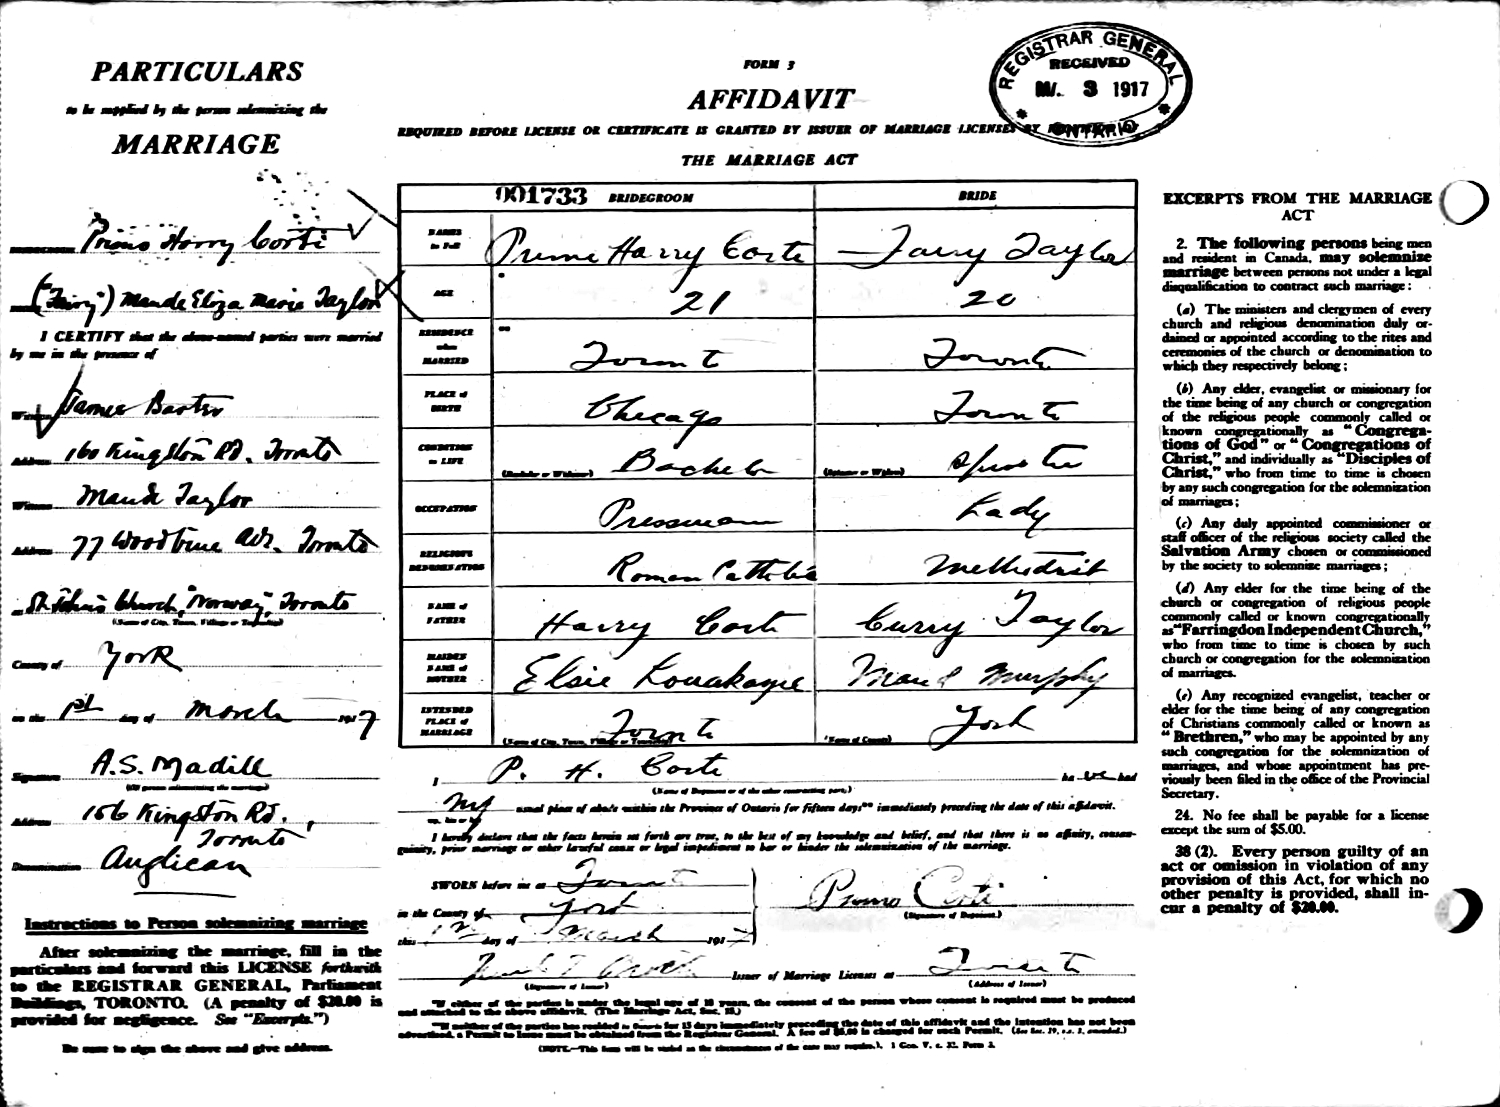 PARTICULARS
to be supplied by the person solemnizing the
MARRIAGE
Primo Harry Corti
("Fairy") Maude Eliza Marie Taylor
I CERTIFY that the above-named parties were married
by me in the presence of
Witness James Baxter
Address 160 Kingston Rd. Toronto
Witness Maude Taylor
Address 77 Woodbine Ave. Toronto
St. John's Church, "Norway", Toronto
(Name of City, Town, Village or Township)
County of York
on the 1st day of March 1917
Signature A.S. Madill
(Of person solemnizing the marriage)
Address 156 Kingston Rd.,
Toronto
Denomination Anglican
Instructions to Person solemnizing marriage
After solemnizing the marriage, fill in the
particulars and forward this LICENSE forthwith
to the REGISTRAR GENERAL, Parliament
Buildings, TORONTO. (A penalty of $20.00 is
provided for negligence. See "Excerpts.")
Be sure to sign the above and give address.
FORM 3
AFFIDAVIT
REQUIRED BEFORE LICENSE OR CERTIFICATE IS GRANTED BY ISSUER OF MARRIAGE LICENSES BY
THE MARRIAGE ACT
REGISTRAR GENERAL
RECEIVED
3 1917
ONTARIO
001733 BRIDEGROOM BRIDE
NAMES in Full Primo Harry Corte Fairy Taylor
AGE 21 20
RESIDENCE when MARRIED Toronto Toronto
PLACE of BIRTH Chicago Toronto
CONDITION in LIFE (Bachelor or Widower) Bachelor (Spinster or Widow) Spinster
OCCUPATION Pressman Lady
RELIGIOUS DENOMINATION Roman Catholic Methodist
NAME of FATHER Harry Corte Curry Taylor
MAIDEN NAME of MOTHER Elsie Maud Murphy
INTENDED PLACE of MARRIAGE Toronto York
(Name of City, Town, Village or Township) (Name of County)
I P. H. Corte have had
(Name of Deponent or of the other contracting party.)
my usual place of abode within the Province of Ontario for fifteen days** immediately preceding the date of this affidavit.
I hereby declare that the facts herein set forth are true, to the best of my knowledge and belief, and that there is no affinity, consan-
guinity, prior marriage or other lawful cause or legal impediment to bar or hinder the solemnization of the marriage.
SWORN before me at Toronto
in the County of York
this day of March 1917
Primo Corti
(Signature of Deponent.)
Issuer of Marriage Licenses at Toronto
(Signature of Issuer) (Address of Issuer)
*If either of the parties is under the legal age of 18 years, the consent of the person whose consent is required must be produced
and attached to the above affidavit. (The Marriage Act, Sec. 15.)
**If neither of the parties has resided in Ontario for 15 days immediately preceding the date of this affidavit and the intention has not been
advertised, a Permit to Issue must be obtained from the Registrar General. A fee of $5.00 is charged for such Permit.
(NOTE.—This form will be varied as the circumstances of the case may require.). 1 Geo. V. c. 32. Form 3.
EXCERPTS FROM THE MARRIAGE
ACT
2. The following persons being men
and resident in Canada, may solemnize
marriage between persons not under a legal
disqualification to contract such marriage:
(a) The ministers and clergymen of every
church and religious denomination duly or-
dained or appointed according to the rites and
ceremonies of the church or denomination to
which they respectively belong;
(b) Any elder, evangelist or missionary for
the time being of any church or congregation
of the religious people commonly called or
known congregationally as "Congrega-
tions of God" or "Congregations of
Christ," and individually as "Disciples of
Christ," who from time to time is chosen
by any such congregation for the solemnization
of marriages;
(c) Any duly appointed commissioner or
staff officer of the religious society called the
Salvation Army chosen or commissioned
by the society to solemnize marriages;
(d) Any elder for the time being of the
church or congregation of religious people
commonly called or known congregationally
as "Farringdon Independent Church,"
who from time to time is chosen by such
church or congregation for the solemnization
of marriages.
(e) Any recognized evangelist, teacher or
elder for the time being of any congregation
of Christians commonly called or known as
"Brethren," who may be appointed by any
such congregation for the solemnization of
marriages, and whose appointment has pre-
viously been filed in the office of the Provincial
Secretary.
24. No fee shall be payable for a license
except the sum of $5.00.
38 (2). Every person guilty of an
act or omission in violation of any
provision of this Act, for which no
other penalty is provided, shall in-
cur a penalty of $20.00.